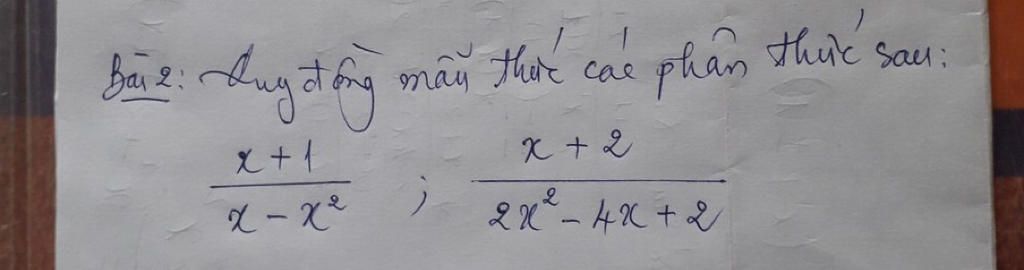 Bài 2: Quy đồng mẫu thức các phân thức sau:
x + 1 / x - x² ; x + 2 / 2x² - 4x + 2